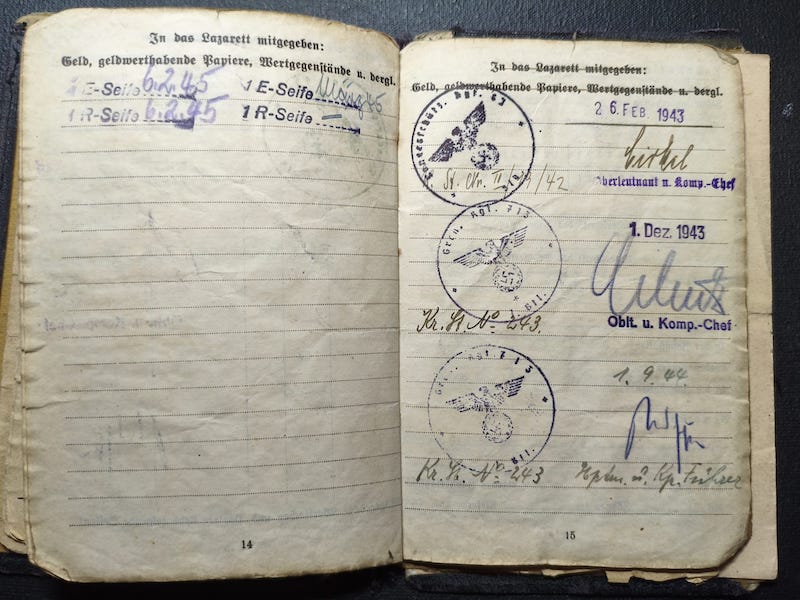 In das Lazarett mitgegeben:
Geld, geldwerthabende Papiere, Wertgegenstände u. dergl.
1 E-Seife 6.2.45 1 E-Seife März 45
1 R-Seife 6.2.45 1 R-Seife —
14
In das Lazarett mitgegeben:
Geld, geldwerthabende Papiere, Wertgegenstände u. dergl.
26. FEB. 1943
Oberleutnant u. Komp.-Chef
1. Dez. 1943
Gren. Rgt. 713
Btl.
Kr. St. No 243.
Oblt. u. Komp.-Chef
1.9.44.
Gren. Rgt. 713
Btl.
Kr. St. No 243
Hptm. u. Kp. Führer
15